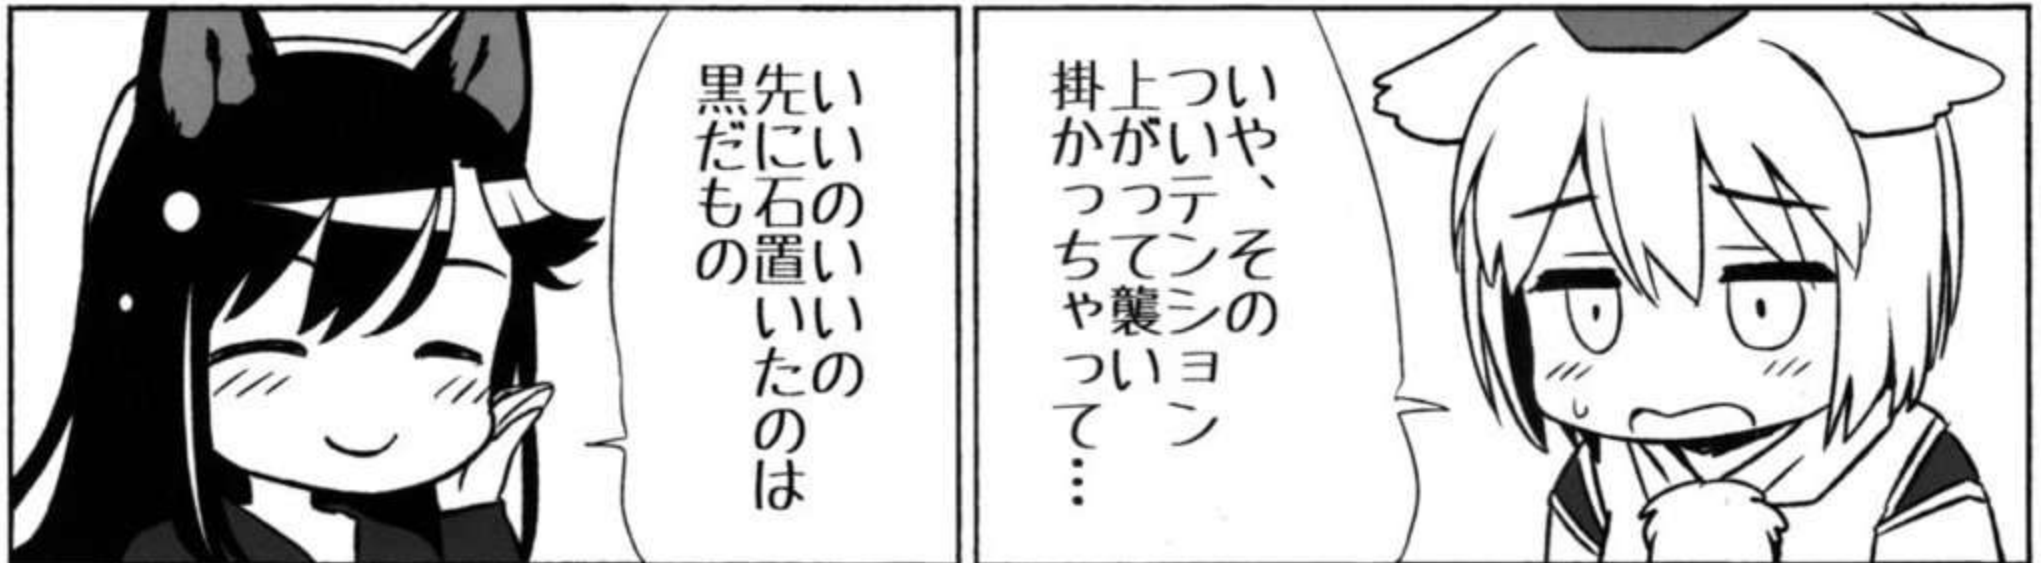 いや、その
ついテンション
上がって襲い
掛かっちゃって…
いいのいいの
先に石置いたのは
黒だもの